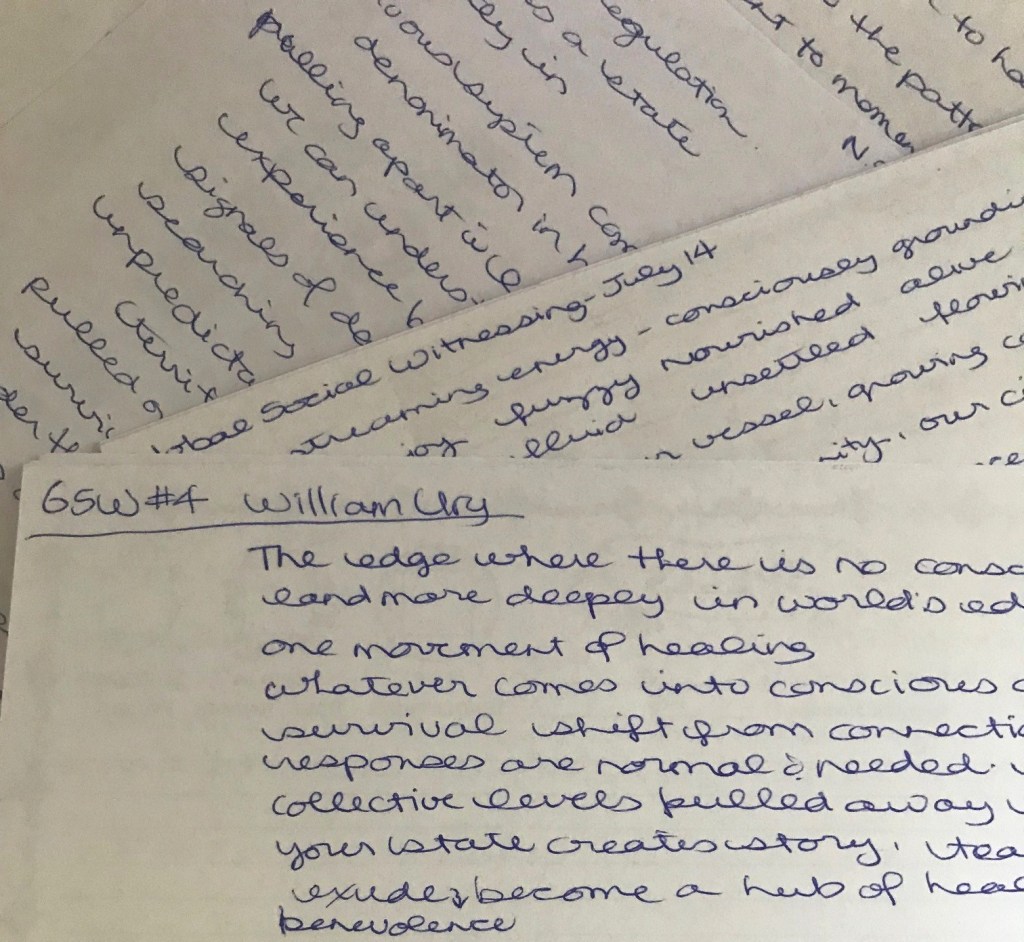 egulation
s a state
ey in
denominator in
pulling apart
we can unders
experience
signals of de
searching
unpredicta
pulled
survi
to ha
the patt
nt to momen
2.
bal Social Witnessing - July 14
treaming energy - consciously groundi
fuzzy nourished alive
fluid unsettled flowin
vessel, growing
ity, our ci
GSW #4 William Ury
The edge where there is no consc
land more deeply in world's ed
one movement of healing
whatever comes into conscious
survival shift from connectio
responses are normal & needed.
collective levels pulled away
your state creates story.
exude & become a hub of heal
benevolence